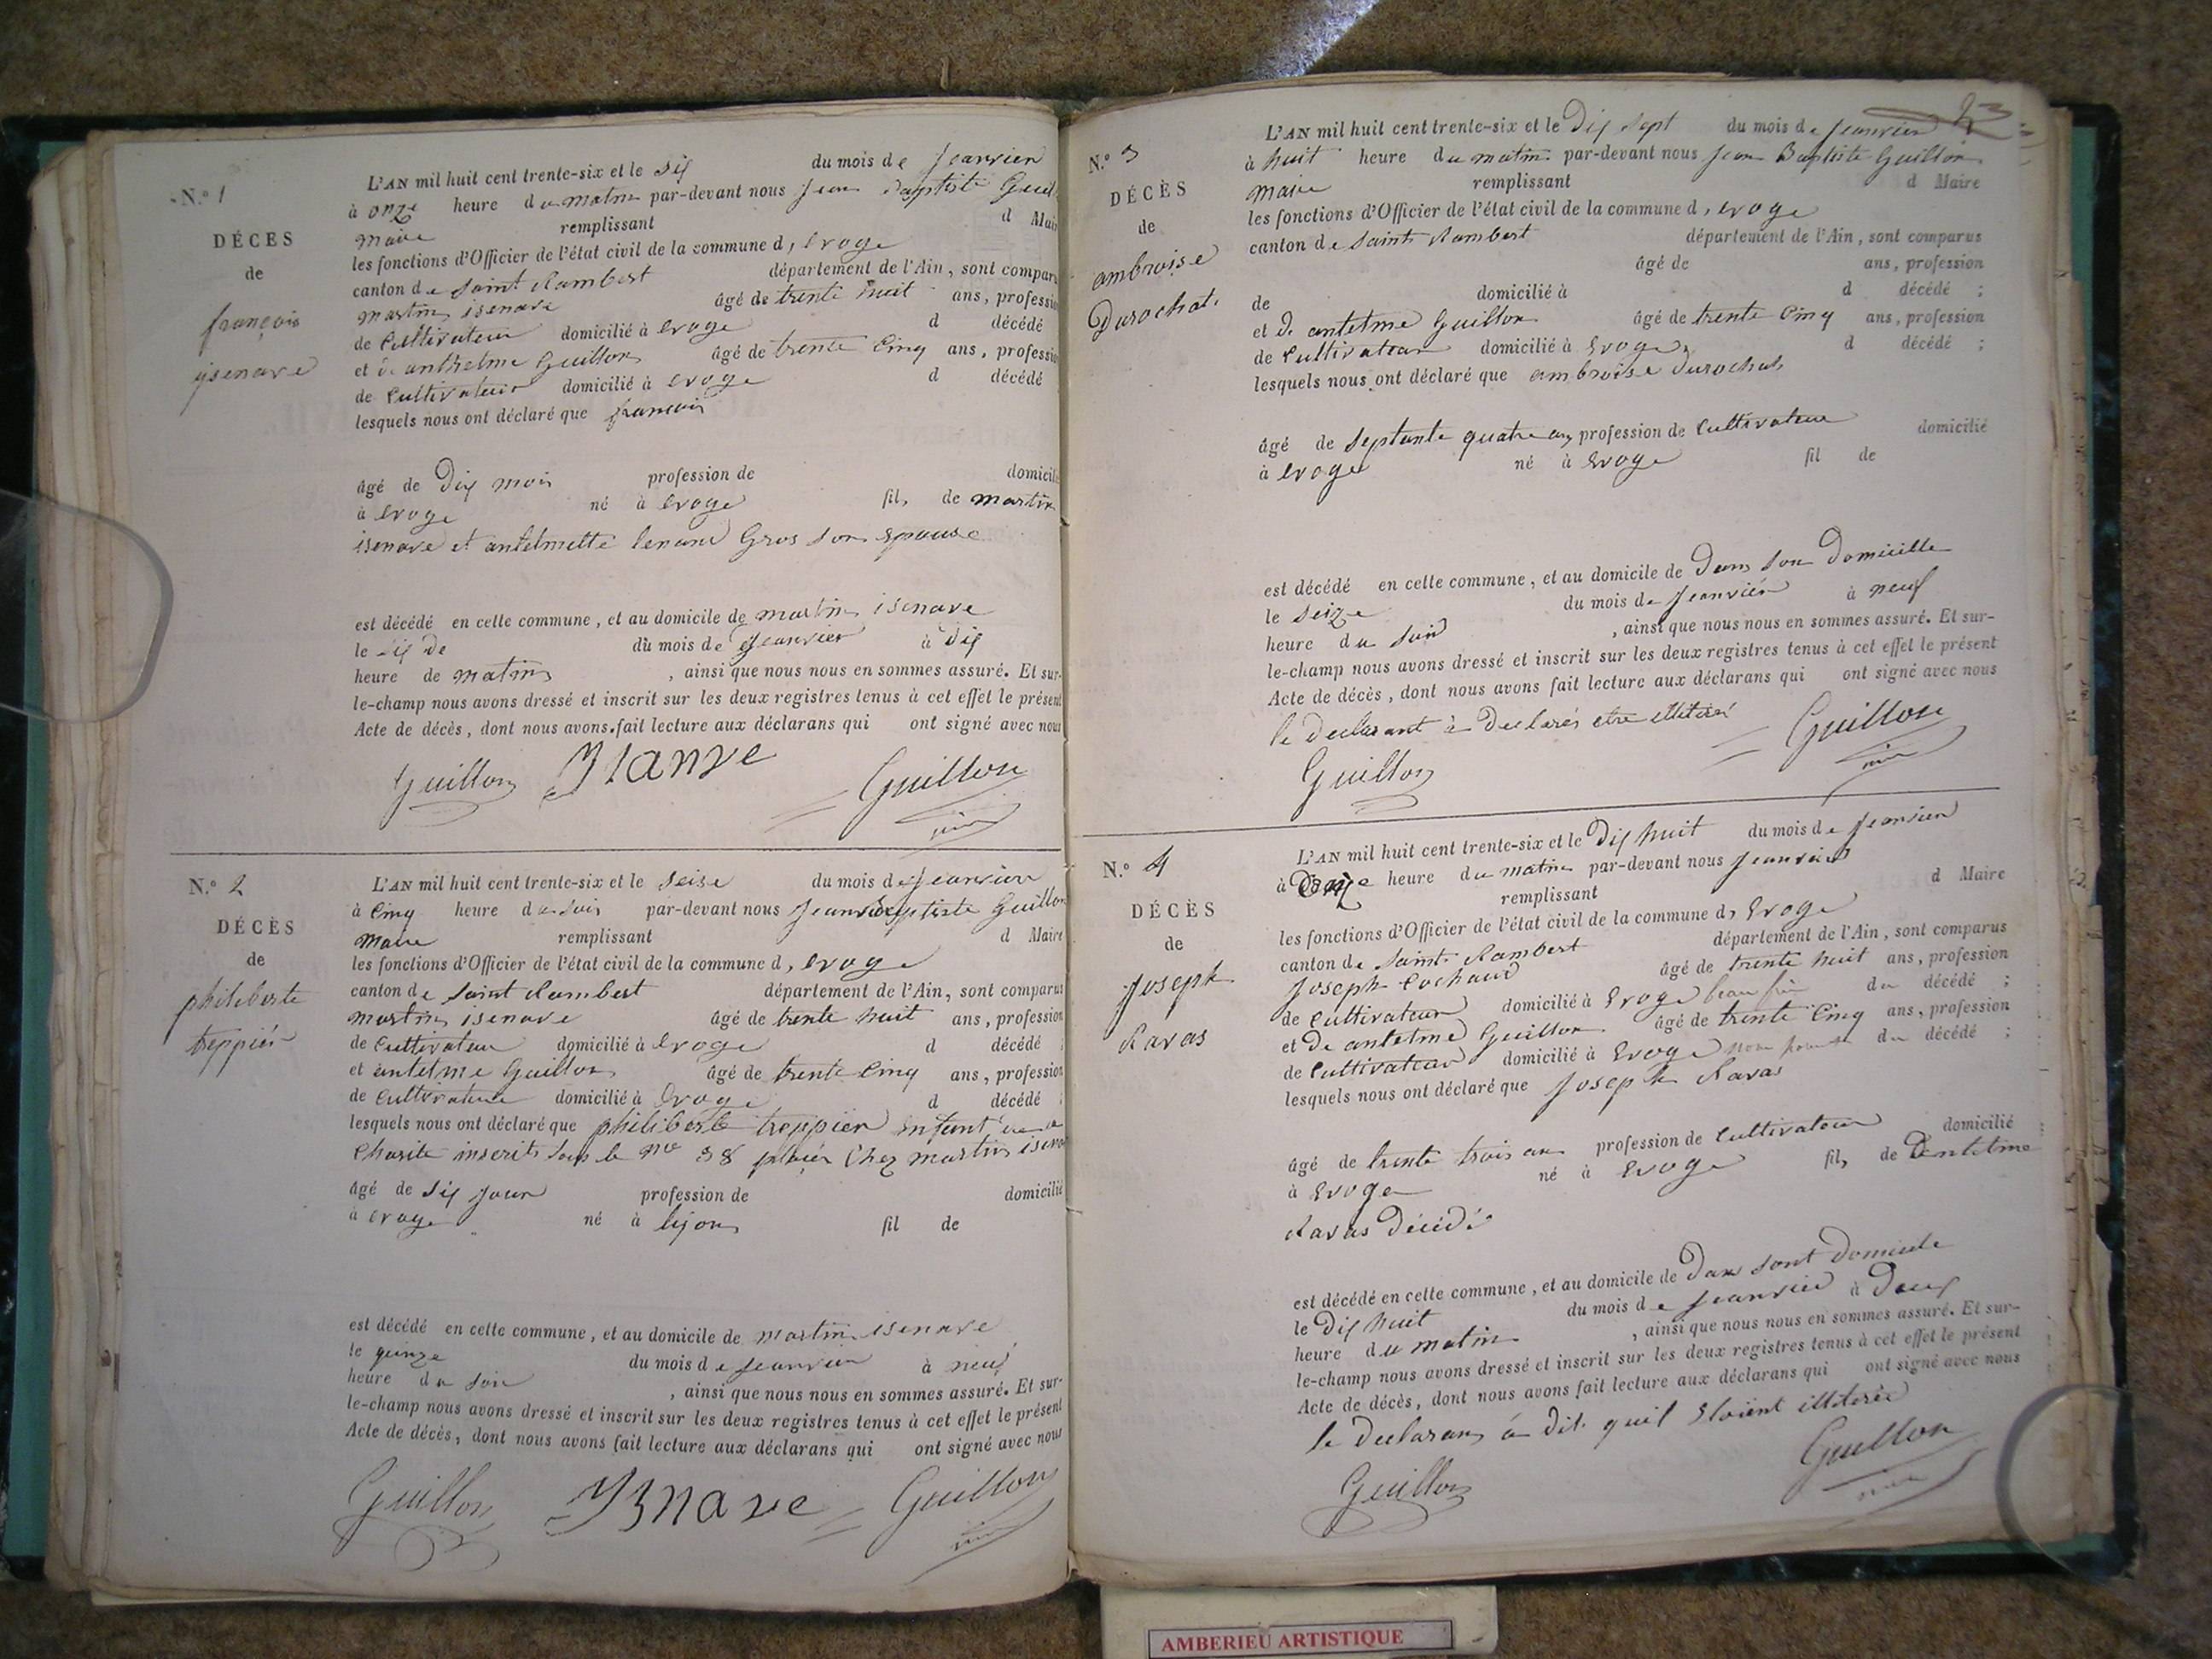 N.º 1
DÉCES
de
françois
ysenave
L'AN mil huit cent trente-six et le six du mois de Jeanvier
à onze heure du matin par-devant nous Jean Baptiste Guil
maire remplissant d Mair
les fonctions d'Officier de l'état civil de la commune d, evoge
canton de saint Rambert département de l'Ain, sont compar
martin isenave âgé de trente huit ans, professi
de Cultivateur domicilié à evoge d décédé
et de anthelme Guillon âgé de trente Cinq ans, professi
de Cultivateur domicilié à evoge d décédé
lesquels nous ont déclaré que françois
âgé de Dix mois profession de domicili
à evoge né à evoge fils de martin
isenave et antelmette Gros son epouse
est décédé en cette commune, et au domicile de martin isenave
le six de du mois de Jeanvier à dix
heure de matin, ainsi que nous nous en sommes assuré. Et sur-
le-champ nous avons dressé et inscrit sur les deux registres tenus à cet effet le présent
Acte de décès, dont nous avons fait lecture aux déclarans qui ont signé avec nous
Guillon Guillon
N.º 2
DÉCÈS
de
philiberte
treppier
L'AN mil huit cent trente-six et le seise du mois de Jeanvier
à Cinq heure du soir par-devant nous Jean Baptiste Guillon
maire remplissant d Maire
les fonctions d'Officier de l'état civil de la commune d, evoge
canton de saint Rambert département de l'Ain, sont comparus
martin isenave âgé de trente huit ans, profession
de Cultivateur domicilié à evoge d décédé
et antelme Guillon âgé de trente Cinq ans, profession
de Cultivateur domicilié à evoge d décédé
lesquels nous ont déclaré que philiberte treppier enfant
Charite inscrit sous le no 38 placér Chez martin isenav
âgé de six jour profession de domicilié
à evoge né à lijon fil de
est décédé en cette commune, et au domicile de martin isenave
le quinze du mois de Jeanvier à neuf
heure du soir, ainsi que nous nous en sommes assuré. Et sur-
le-champ nous avons dressé et inscrit sur les deux registres tenus à cet effet le présent
Acte de décès, dont nous avons fait lecture aux déclarans qui ont signé avec nous
Guillon Guillon
N.º 3
DÉCÈS
de
ambroise
Durochat
L'AN mil huit cent trente-six et le Dix sept du mois de Jeanvier
à huit heure du matin par-devant nous Jean Baptiste Guillon
maire remplissant d Maire
les fonctions d'Officier de l'état civil de la commune d, evoge
canton de saint Rambert département de l'Ain, sont comparus
âgé de ans, profession
de domicilié à d décédé ;
et De antelme Guillon âgé de trente Cinq ans, profession
de Cultivateur domicilié à Evoge d décédé ;
lesquels nous ont déclaré que ambroise Durochat
âgé de septante quatre an profession de Cultivateur domicilié
à evoge né à Evoge fil de
est décédé en cette commune, et au domicile de Dans son Domicille
le seize du mois de Jeanvier à neuf
heure du soir, ainsi que nous nous en sommes assuré. Et sur-
le-champ nous avons dressé et inscrit sur les deux registres tenus à cet effet le présent
Acte de décès, dont nous avons fait lecture aux déclarans qui ont signé avec nous
le declarant à Declarés etre
Guillon Guillon
N.º 4
DÉCÈS
de
Joseph
Ravas
L'AN mil huit cent trente-six et le Dix huit du mois de Jeanvier
à heure du matin par-devant nous Jeanvier
remplissant d Maire
les fonctions d'Officier de l'état civil de la commune d, Evoge
canton de saint Rambert département de l'Ain, sont comparus
Joseph Cochaud âgé de trente huit ans, profession
de Cultivateur domicilié à Evoge beau frère du décédé ;
et De antelme Guillon âgé de trente Cinq ans, profession
de Cultivateur domicilié à Evoge non du décédé ;
lesquels nous ont déclaré que Joseph Ravas
âgé de trente trois an profession de Cultivateur domicilié
à Evoge né à Evoge fils de antelme
Ravas Décédé
est décédé en cette commune, et au domicile de Dans sont Domicile
le Dix huit du mois de Jeanvier à Deux
heure du matin, ainsi que nous nous en sommes assuré. Et sur-
le-champ nous avons dressé et inscrit sur les deux registres tenus à cet effet le présent
Acte de décès, dont nous avons fait lecture aux déclarans qui ont signé avec nous
le Declarans à Dit quil Etoient
Guillon Guillon
AMBERIEU ARTISTIQUE